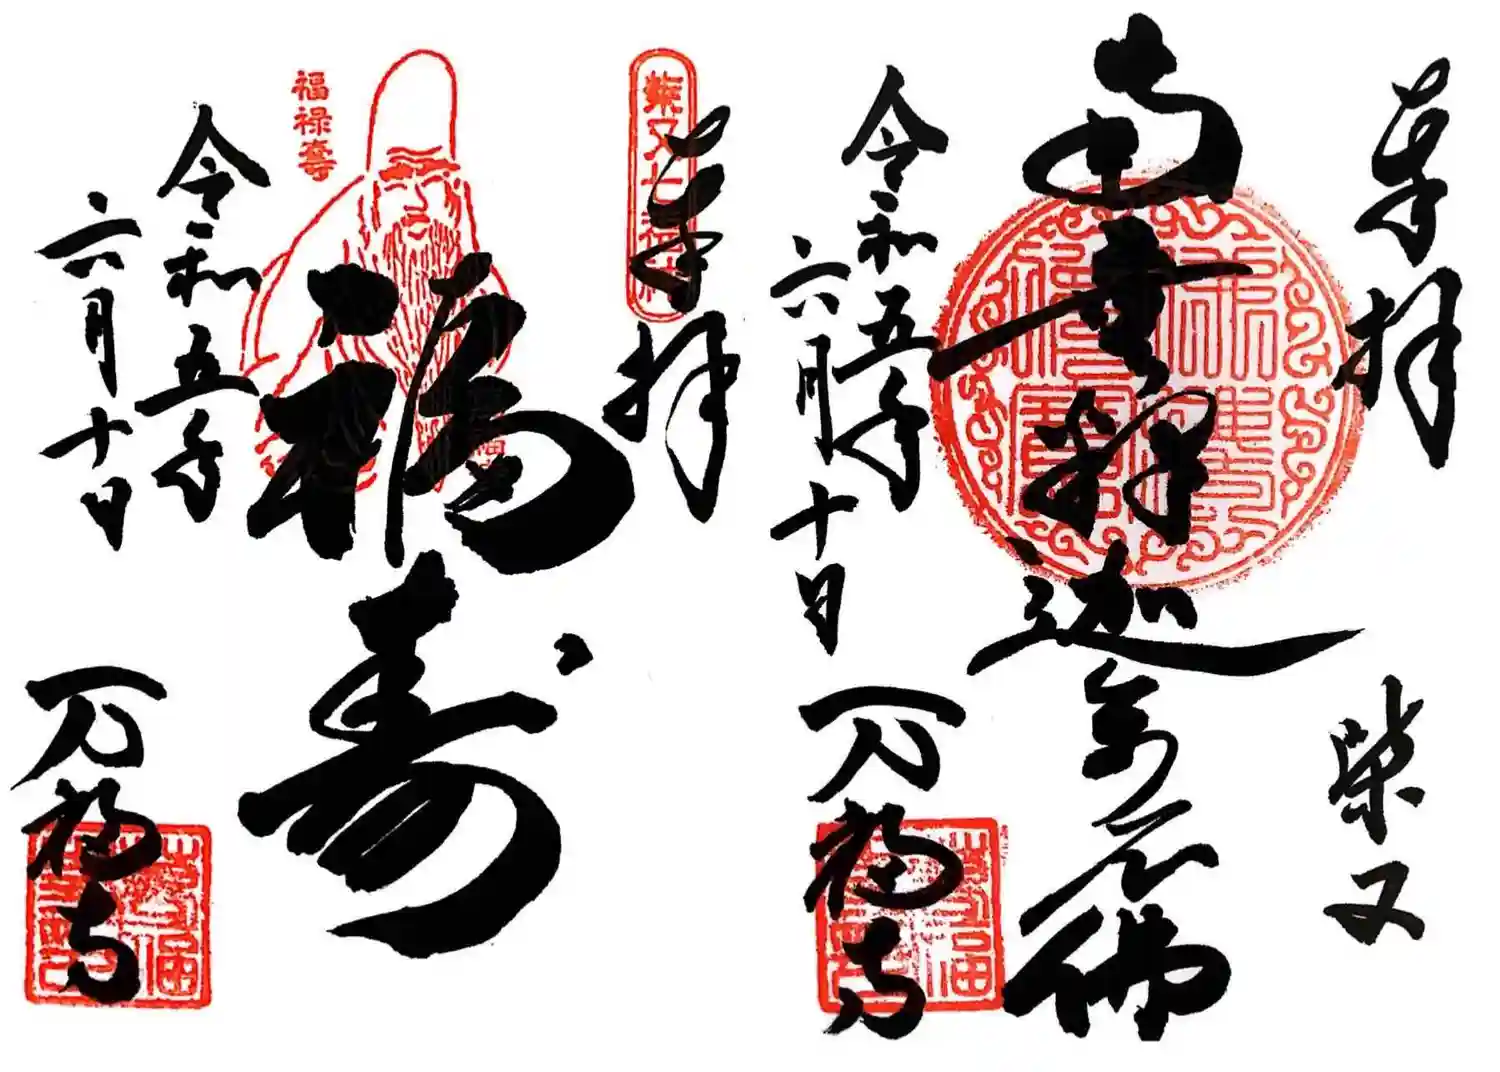 奉拝
柴又
南無釈迦牟尼佛
令和五年
六月十日
万福寺
奉拝
柴又七福神
福寿
福禄寿
令和五年
六月十日
万福寺